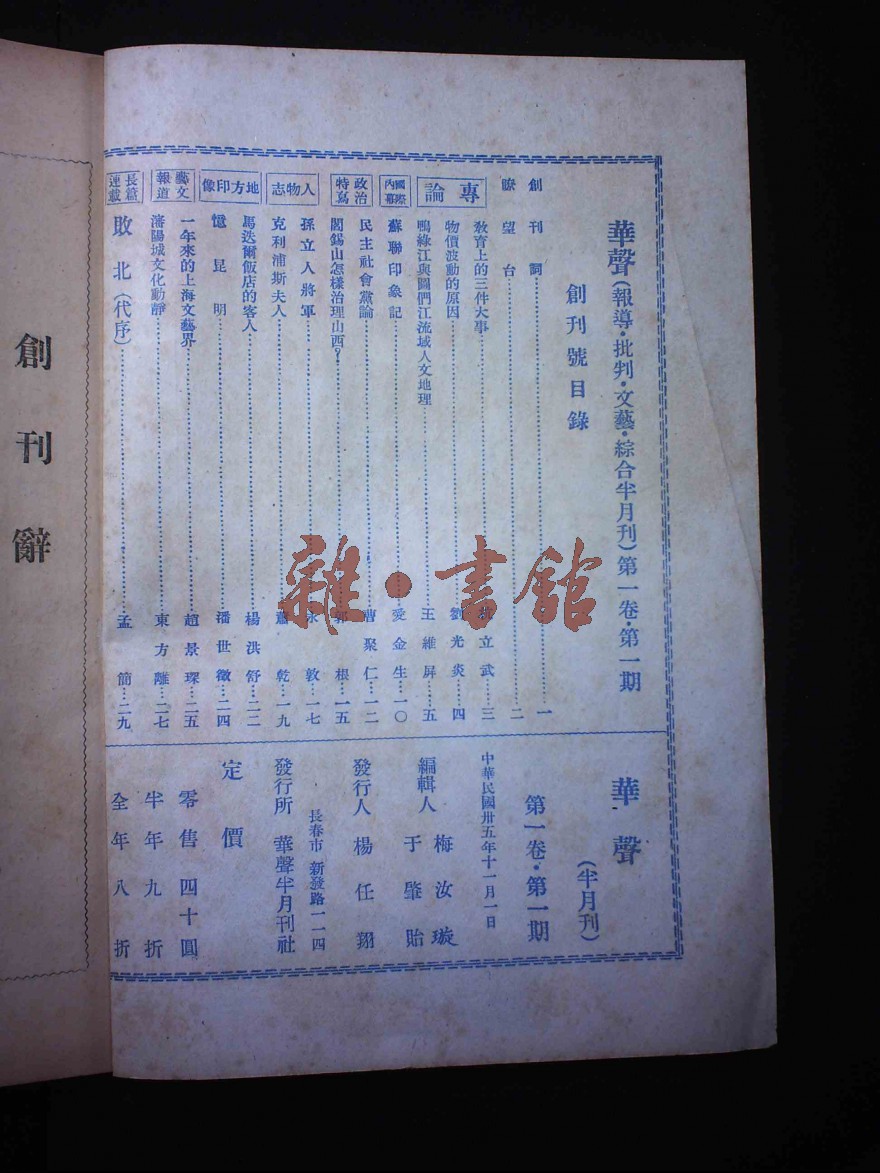 華聲(報導·批判·文藝·綜合半月刊)第一卷·第一期
創刊號目錄
創刊詞……一
瞭望台……二
專論
教育上的三件大事……立武…三
物價波動的原因……劉光炎…四
鴨綠江與圖們江流域人文地理……王維屏…五
國際內幕
蘇聯印象記……愛金生…一〇
政治特寫
民主社會黨論……曹聚仁…一二
閻錫山怎樣治理山西?……郭根…一五
人物志
孫立人將軍……永敦…一七
克利浦斯夫人……蕭乾…一九
地方印像
馬迭爾飯店的客人……楊洪舒…二二
憶昆明……潘世徵…二四
藝文報道
一年來的上海文藝界……趙景琛…二五
瀋陽城文化動靜……東方離…二七
長篇連載
敗北(代序)……孟簡…二九
華聲
(半月刊)
第一卷·第一期
中華民國卅五年十一月一日
編輯人 梅汝璇
于肇貽
發行人 楊任翔
長春市新發路一一四
發行所 華聲半月刊社
定價
零售四十圓
半年九折
全年八折
創刊辭
雜·書館